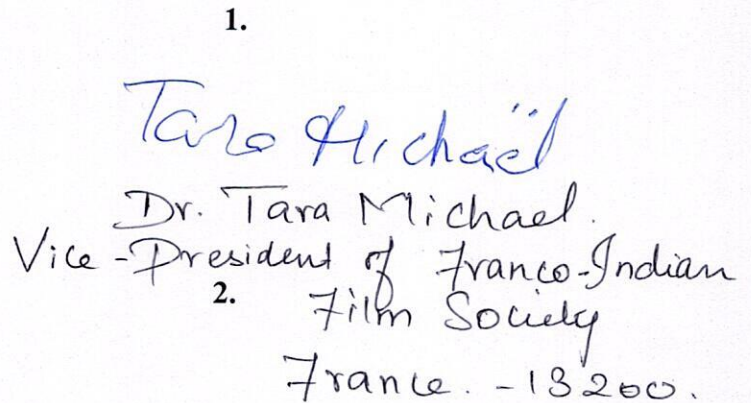 1.
Tara Michaël
Dr. Tara Michael.
Vice-President of Franco-Indian
2. Film Society
France. -13200.